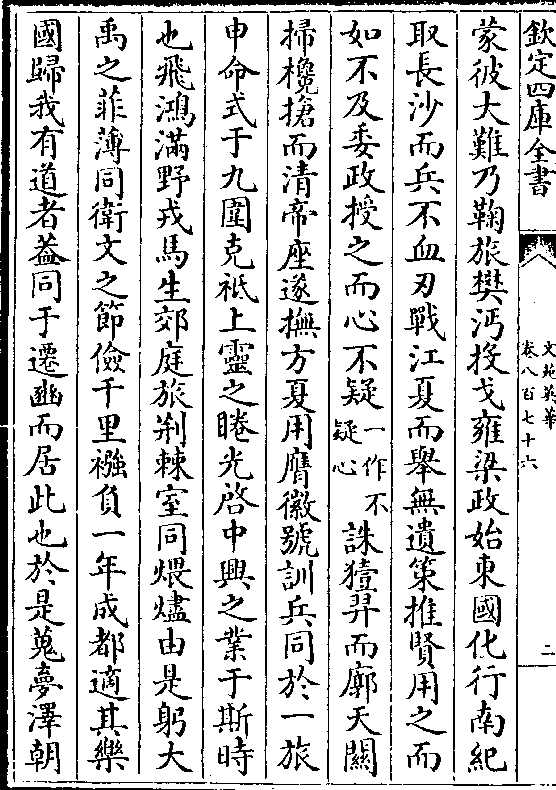 欽定四庫全書
文苑英華
卷八百七十六
二
蒙彼大難乃鞠旅樊沔投戈雍梁政始東國化行南紀
取長沙而兵不血刃戰江夏而舉無遺策推賢用之而
如不及委政授之而心不疑一作不疑心誅獟羿而廓天闗
掃欃搶而清帝座遂撫方夏用膺徽號訓兵同於一旅
申命式于九圍克祗上靈之睠光啓中興之業于斯時
也飛鴻滿野戎馬生郊庭旅荆棘室同煨燼由是躬大
禹之菲薄同衛文之節儉千里襁負一年成都適其樂
國歸我有道者葢同于遷豳而居此也於是蒐夢澤朝